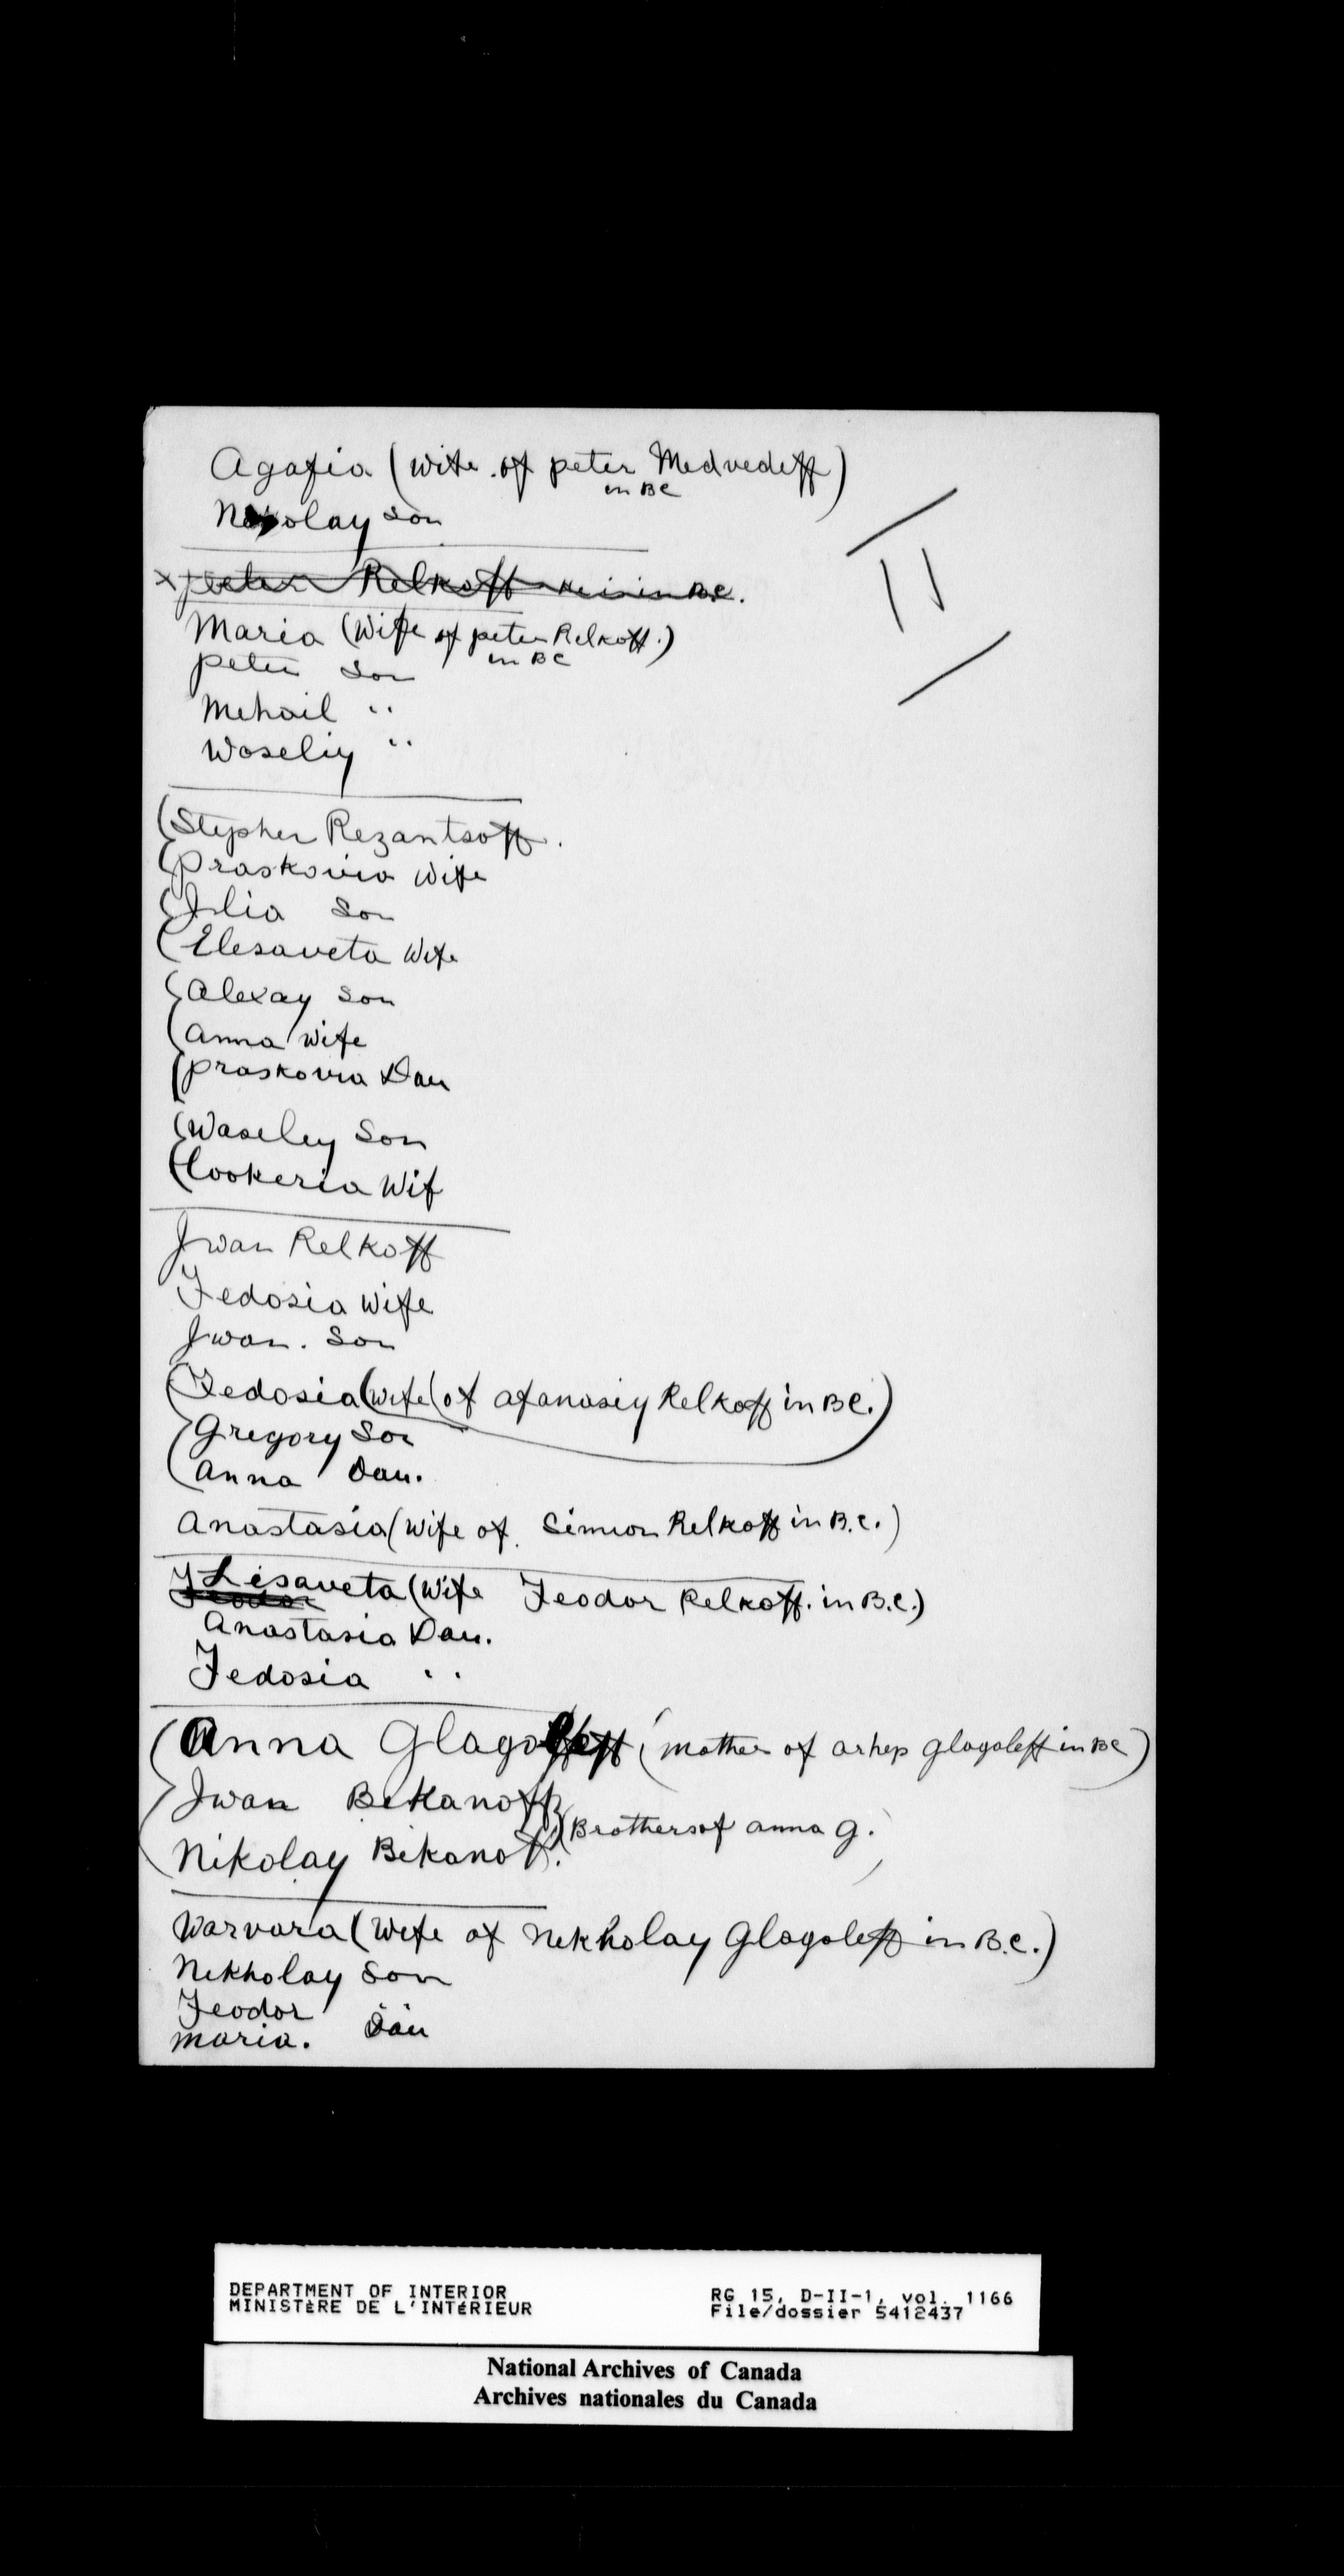 Agafia (wife of peter Medvedeff)
in BC
Nikolay son
11
x peter Relkoff he is in B.C.
Maria (Wife of peter Relkoff.)
in BC
peter Son
Mehail "
Waseliy "
Stephen Rezantsoff.
Praskovia Wife
Ilia Son
Elesaveta Wife
Alexay Son
Anna Wife
Praskovia Dau
Waseley Son
Lookeria Wif
Iwan Relkoff
Fedosia Wife
Iwan. Son
Fedosia (wife (of afanasiy Relkoff in BC.)
Gregory Son
Anna Dau.
Anastasia (Wife of Simeon Relkoff in B.C.)
Lisaveta (Wife Feodor Relkoff. in B.C.)
Feodor
Anastasia Dau.
Fedosia "
Anna Glagoleff (mother of arhep glagoleff in BC)
Iwan Bekanoff
Brothers of anna g.
Nikolay Bekanoff.
Warvara (Wife of Nekholay Glagoleff in B.C.)
Nekholay Son
Feodor "
maria. Dau
DEPARTMENT OF INTERIOR RG 15, D-II-1, vol. 1166
MINISTÈRE DE L'INTÉRIEUR File/dossier 5412437
National Archives of Canada
Archives nationales du Canada